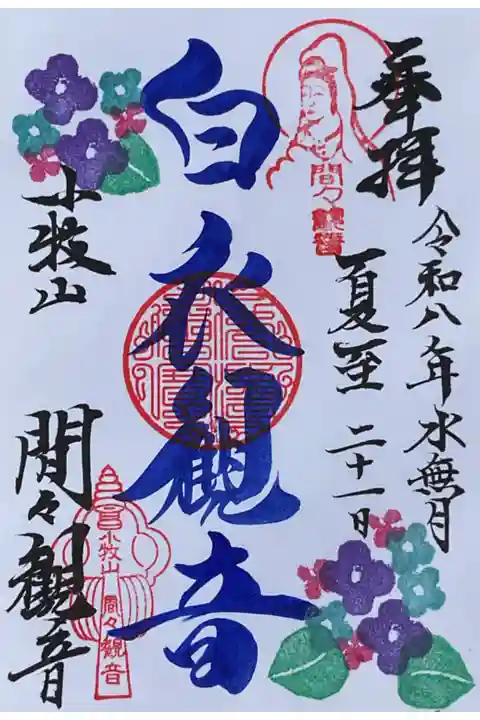 奉拝
令和八年水無月
夏至 二十一日
間々
観音
白衣観音
小牧山
間々観音
小牧山
間々観音